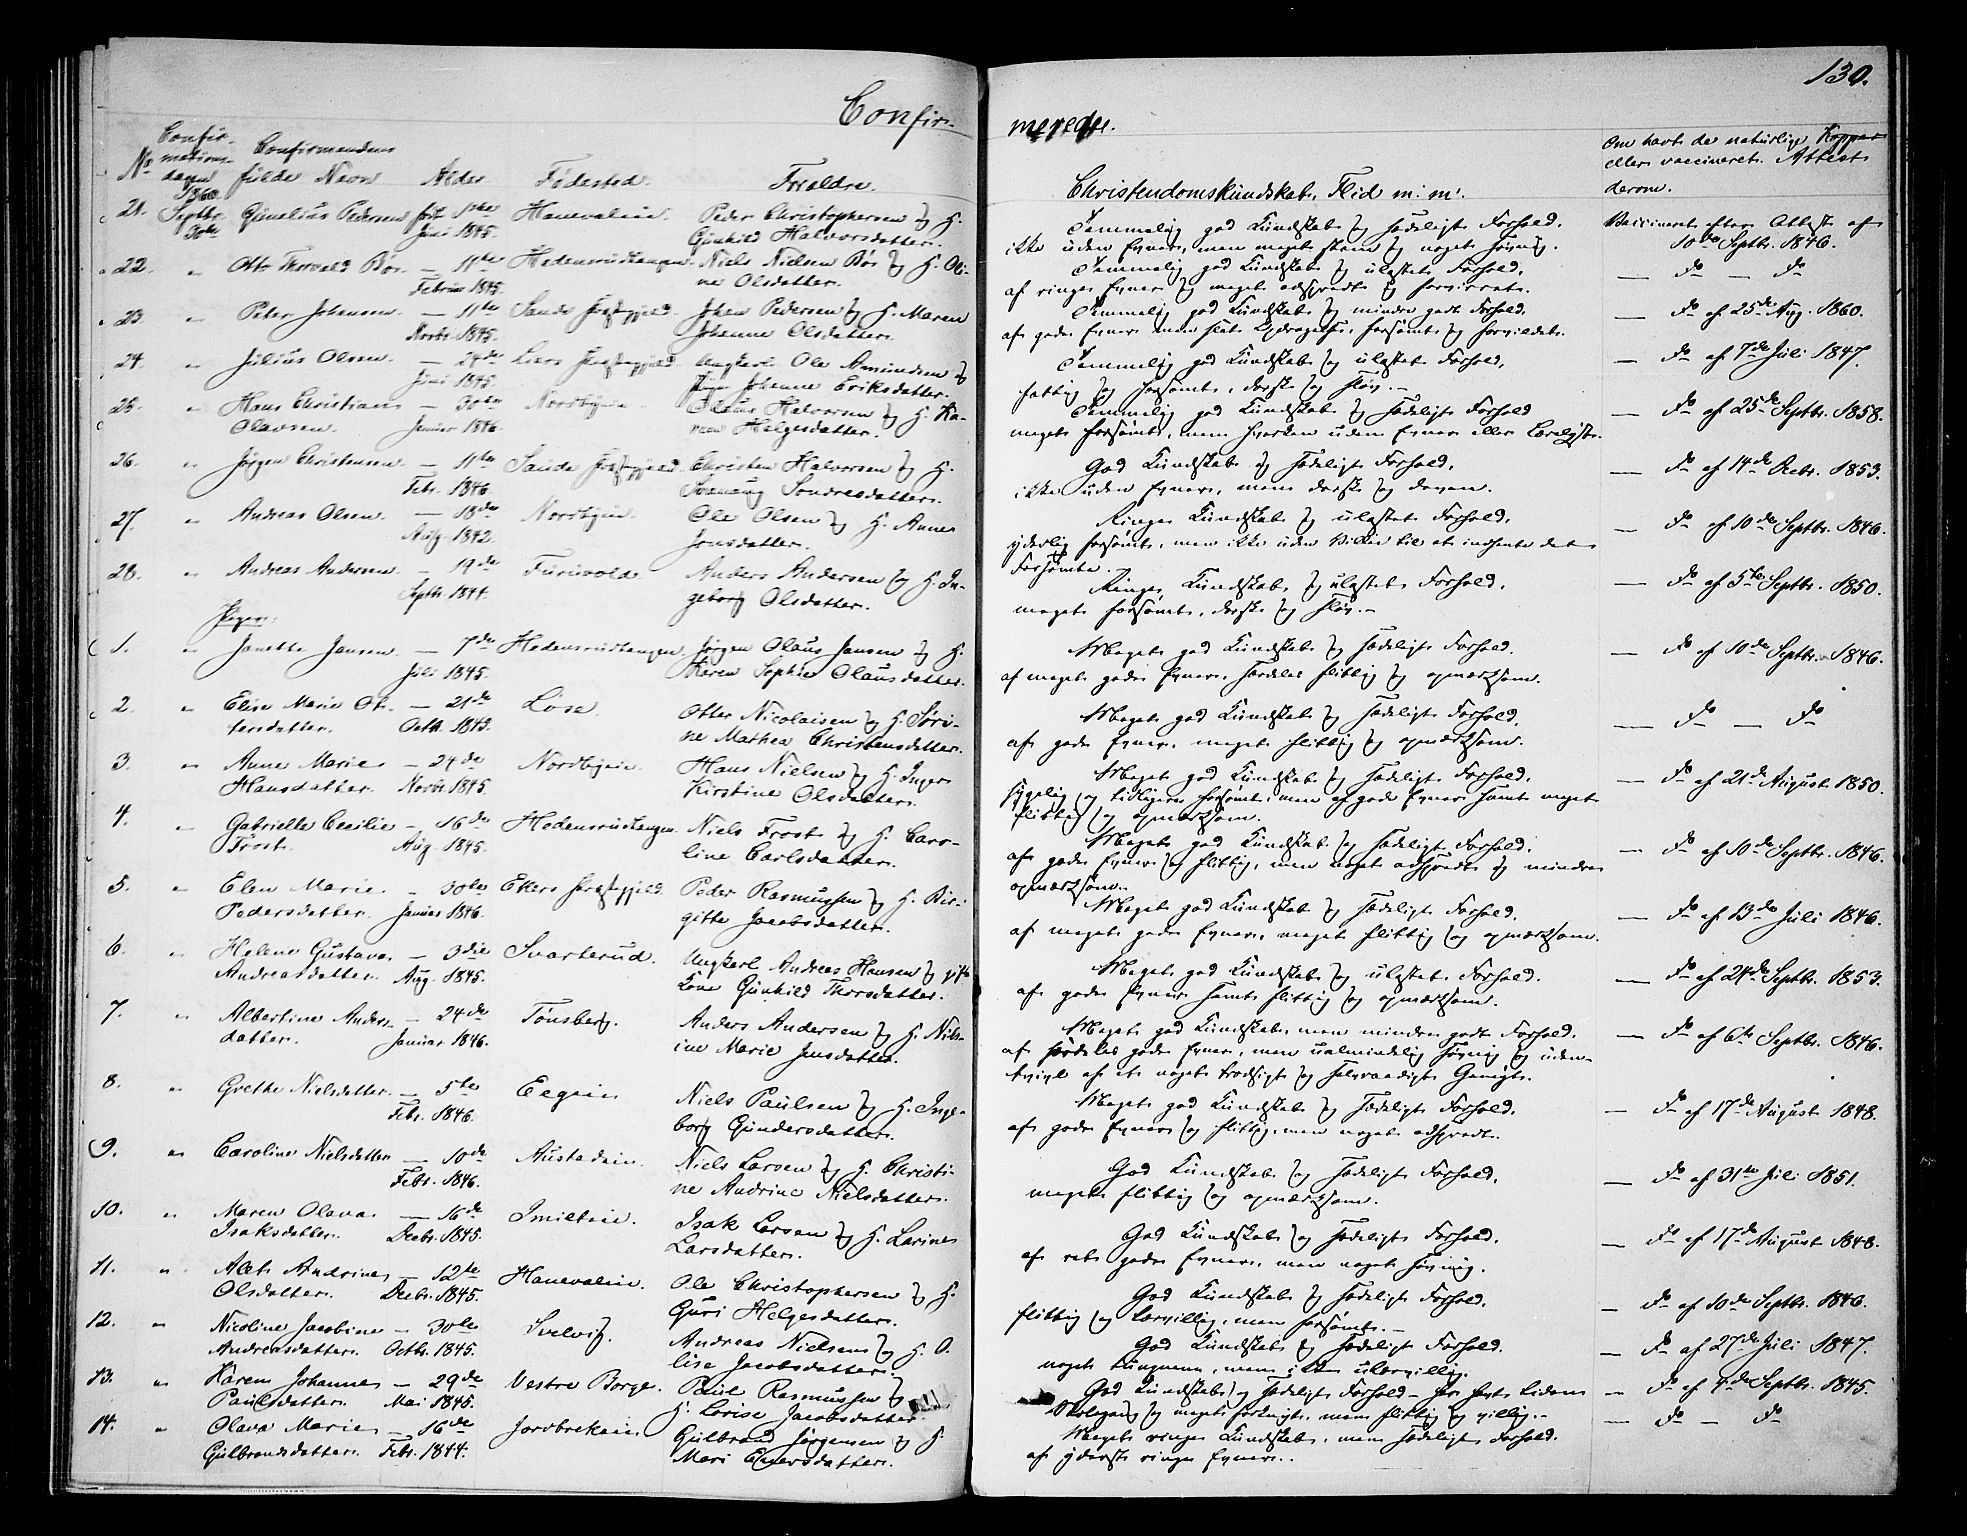 130.
Confir-
merede.
No
Confir-
mations-
dagen
1860.
Confirmandens
fulde Navn
Alder
Fødested.
Forældre.
Christendomskundskab, Flid m: m:
Om havt de naturlige Kopper
eller vaccineret. Attest
derom.
21. Septbr. 30te Gunelius Pedersen født 1ste Juni 1845. Hanevalein. Peder Christophersen og H.
Gunhild Halvorsdatter.
Temmelig god Kundskab og sædeligt Forhold.
ikke uden Evner, men meget
Vaccineret efter Attest af
10de Septbr. 1846.
22. " Otto Thorvald Bør. — 11te Februar 1845. Hedensrudtangen. Niels Nielsen Bør og H. Oli-
ne Olsdatter.
Temmelig god Kundskab og ulastet Forhold.
af ringe Evner og meget adspredt og
— Do — Do
23 " Peter Johansen — 11te Novbr. 1845. Sande Præstegjeld. Johan Pedersen og H. Maren
Johanne Olsdatter.
Temmelig god Kundskab og mindre godt Forhold.
af gode Evner men slet Opdragelse, forsømt og forvildet.
— Do af 25de Aug. 1860.
24. " Julius Olsen. — 24de Juni 1845. Liers Præstegjeld. Ungkarl Ole Amundsen og
Pige Johanne Eriksdatter.
Temmelig god Kundskab og ulastet Forhold,
fattig og forsømt, dorsk og sløv.—
— Do af 7de Juli 1847.
25. " Hans Christian Olavsen. — 30te Januar 1846. Nordbyein Olaus Halvorsen og H. Ka-
ren Helgesdatter.
Temmelig god Kundskab og sædeligt Forhold
meget forsømt, men hverken uden Evner eller Lærelyst.
— Do af 25de Septbr. 1858.
26. " Jørgen Christensen. — 11te Febr. 1846. Sande Præstegjeld. Christen Halvorsen og H.
Svanaug Sondresdatter.
God Kundskab og sædeligt Forhold.
ikke uden Evner, men dorsk og doven.
— Do af 14de Decbr. 1853.
27. " Andreas Olsen. — 18de Aug. 1842. Nordbyein. Ole Olsen og H. Anne
Jensdatter.
Ringe Kundskab og ulastet Forhold.
yderlig forsømt, men ikke uden Villie til at indhente det
Forsømte.
— Do af 10de Septbr. 1846.
28. " Andreas Andersen — 19de Septbr. 1844. Furuvold. Anders Andersen og H. In-
geborg Olsdatter.
Ringe Kundskab og ulastet Forhold.
meget forsømt, dorsk og sløv.—
— Do af 5te Septbr. 1850.
Piger:
1. " Janette Jansen — 7de Juli 1845. Hedensrudtangen. Jørgen Olaus Jansen og H.
Karen Sophie Olausdatter.
Meget god Kundskab og sædeligt Forhold.
af meget gode Evner, særdeles flittig og opmærksom.
— Do af 10de Septbr. 1846.
2. " Elise Marie Ot-
tersdatter. — 21de Octb. 1843. Løse. Otter Nicolaisen og H. Søri-
ne Mathea Christensdatter.
Meget god Kundskab og sædeligt Forhold.
af gode Evner, meget flittig og opmærksom.
— Do — Do
3. " Anne Marie
Hansdatter. — 24de Novbr. 1845. Nordbyein. Hans Nielsen og H. Inger
Kirstine Olsdatter.
Meget god Kundskab og sædeligt Forhold.
sygelig og tidligere forsømt, men af gode Evner samt meget
flittig og opmærksom.
— Do af 21de August 1850.
4. " Gabrielle Cecilie
Frost. — 16de Aug. 1845. Hedensrudtangen. Niels Frost og H. Caro-
line Carlsdatter.
Meget god Kundskab og sædeligt Forhold.
af gode Evner og flittig, men noget adspredt og mindre
opmærksom.
— Do af 10de Septbr. 1846.
5. " Elen Marie
Pedersdatter. — 30te Januar 1846. Ekers Præstegjeld. Peder Rasmussen og H. Bir-
gitte Jacobsdatter.
Meget god Kundskab og sædeligt Forhold.
af meget gode Evner, meget flittig og opmærksom.
— Do af 13de Juli 1846.
6. " Helene Gustava
Andreasdatter. — 3die Aug. 1845. Svarterud. Ungkarl Andreas Hansen og gift
Kone Gunhild Thorsdatter.
Meget god Kundskab og ulastet Forhold.
af gode Evner samt flittig og opmærksom.
— Do af 24de Septbr. 1853.
7. " Albertine Anders-
datter. — 24de Januar 1846. Tønsberg. Anders Andersen og H. Niels-
ine Marie Jensdatter.
Meget god Kundskab, men mindre godt Forhold.
af særdeles gode Evner, men ualmindelig
tvivl af et noget trodsigt og
— Do af 6te Septbr. 1846.
8. " Grethe Nielsdatter. — 5te Febr. 1846. Eegein Niels Paulsen og H. Inge-
borg Gundersdatter.
Meget god Kundskab og sædeligt Forhold.
af gode Evner og flittig, men noget adspredt.
— Do af 17de August 1848.
9. " Caroline Nielsdatter — 10de Febr. 1846. Austadein. Niels Larsen og H. Christi-
ne Andrine Nielsdatter.
God Kundskab og sædeligt Forhold.
meget flittig og opmærksom.
— Do af 31te Juli 1851.
10. " Maren Olava
Isaksdatter. — 16de Decbr. 1845. Smiltein. Isak Larsen og H. Larine
Larsdatter.
God Kundskab og sædeligt Forhold.
af ret gode Evner, men noget
— Do af 17de August 1848.
11. " Alet Andrine
Olsdatter. — 12te Decbr. 1845. Hanevalein. Ole Christophersen og H.
Guri Helgesdatter.
God Kundskab og sædeligt Forhold.
flittig og lærvillig, men forsømt.—
— Do af 10de Septbr. 1846.
12. " Nicoline Jacobine
Andreasdatter. — 30te Octb. 1845. Svelvig. Andreas Nielsen og H. O-
lise Jacobsdatter.
God Kundskab og sædeligt Forhold.
noget tungnem, men ikke ulærvillig.
— Do af 27de Juli 1847.
13. " Karen Johanne
Paulsdatter. — 29de Mai 1845. Vestre Borge. Paul Rasmussen og
H. Lovise Jacobsdatter
God Kundskab og sædeligt Forhold —
og meget men flittig og villig.—
— Do af 4de Septbr. 1845.
14. " Olava Marie
Gulbrandsdatter. — 16de Febr. 1844. Jordbrekein Gulbrand Jørgensen og H
Mari Ejersdatter.
Meget ringe Kundskab, men sædeligt Forhold.
af yderst ringe Evner.
— Do — Do